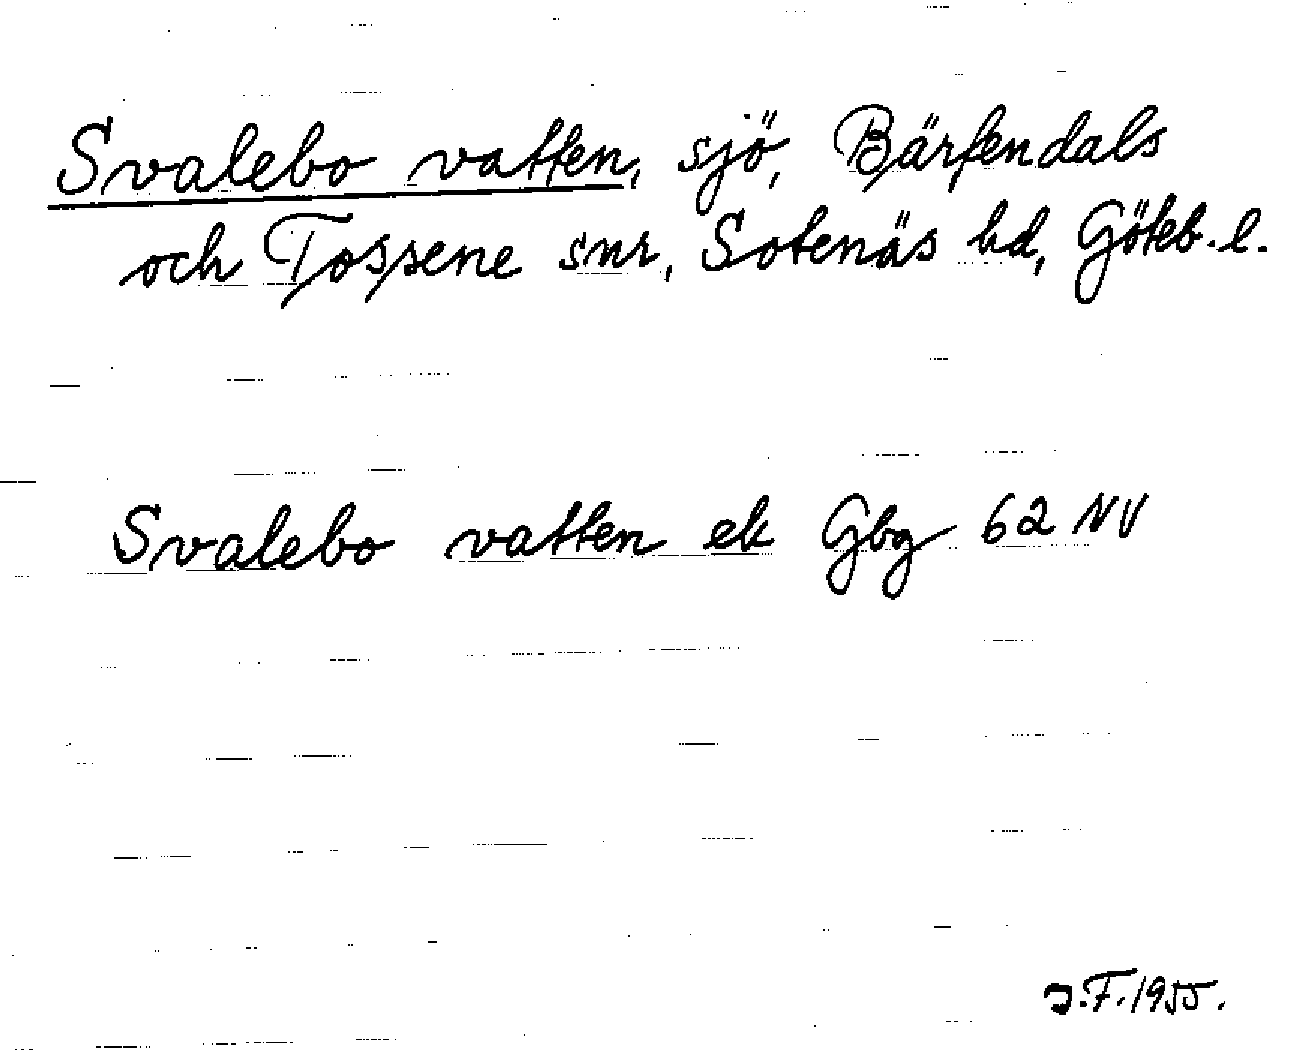 Svalebo vatten, sjö, Bärfendals
och Tossene snr, Sotenäs hd, Göteb. l.
Svalebo vatten ek Gbg 62 NV
J.F. 1955.